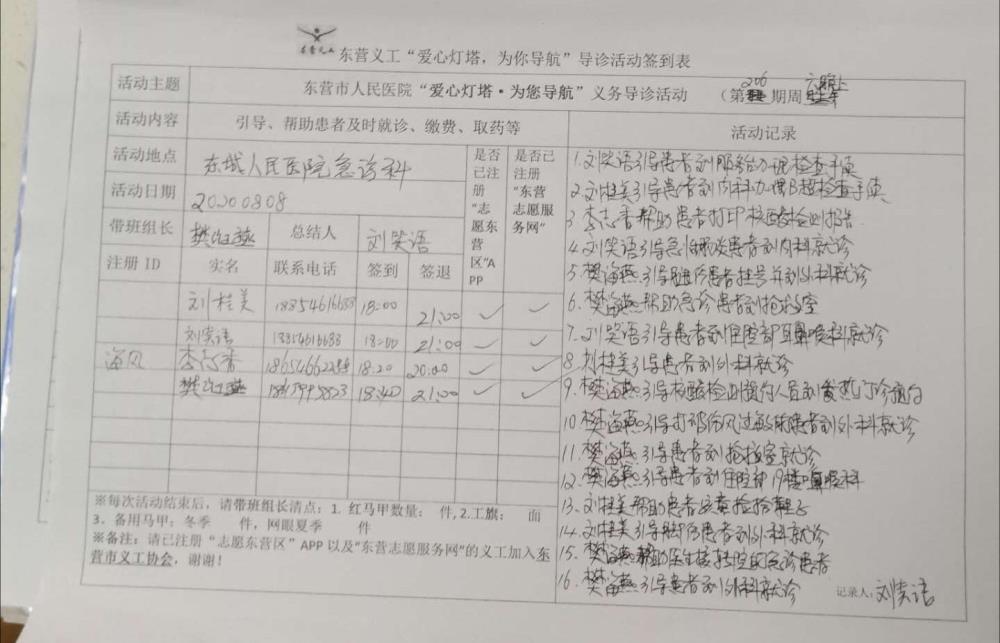 东营义工
东营义工“爱心灯塔，为你导航”导诊活动签到表
活动主题 东营市人民医院“爱心灯塔·为您导航”义务导诊活动 （第206期周六晚上
活动内容 引导、帮助患者及时就诊、缴费、取药等
活动地点 东城人民医院急诊科
活动日期 20200808
带班组长 樊海燕 总结人 刘笑语
是否已注册“志愿东营区”APP
是否已注册“东营志愿服务网”
注册 ID 实名 联系电话 签到 签退
刘桂美 18854616683 18:00 21:00 ✓ ✓
刘笑语 18854616683 18:00 21:00 ✓ ✓
海风 李志香 18:20 20:00 ✓ ✓
樊海燕 18:40 21:00 ✓ ✓
※每次活动结束后，请带班组长清点：1. 红马甲数量： 件, 2.工旗： 面
3. 备用马甲：冬季 件，网眼夏季 件
※备注：请已注册“志愿东营区”APP 以及“东营志愿服务网”的义工加入东
营市义工协会，谢谢！
活动记录
1.刘笑语引导患者到服务台办理检查手续
2.刘桂美引导患者到内科办理B超检查手续
3.李志香帮助患者打印核酸检测报告
4.刘笑语引导患者到内科就诊
5.樊海燕引导患者挂号并到外科就诊
6.樊海燕帮助急诊患者到抢救室
7.刘笑语引导患者到住院部耳鼻喉科就诊
8.刘桂美引导患者到外科就诊
9.樊海燕引导核酸检测预约人员到发热门诊预约
10.樊海燕引导打破伤风过敏的患者到外科就诊
11.樊海燕引导患者到抢救室就诊
12.樊海燕引导患者到住院部19楼耳鼻喉科
13.刘桂美帮助患者
14.刘桂美引导脚伤患者到外科就诊
15.樊海燕帮助医生接转院的急诊患者
16.樊海燕引导患者到外科就诊
记录人：刘笑语